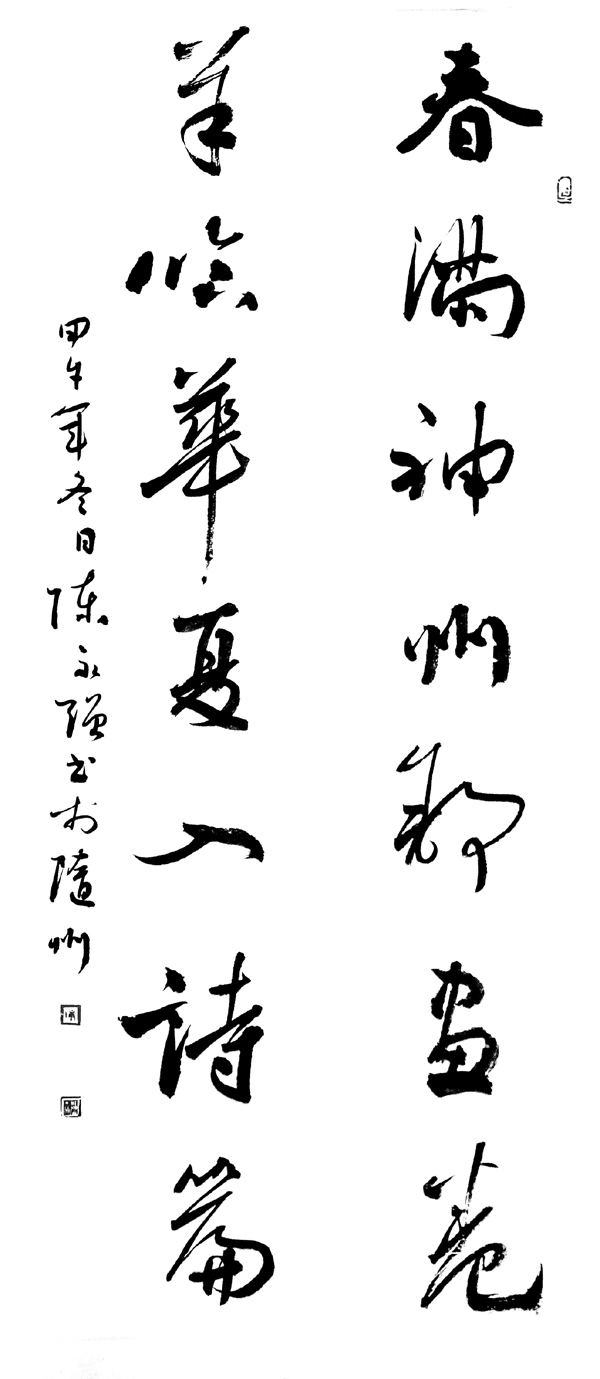 春满神州舒画卷
羊临華夏入詩篇
甲午年冬日陈永强书於隨州